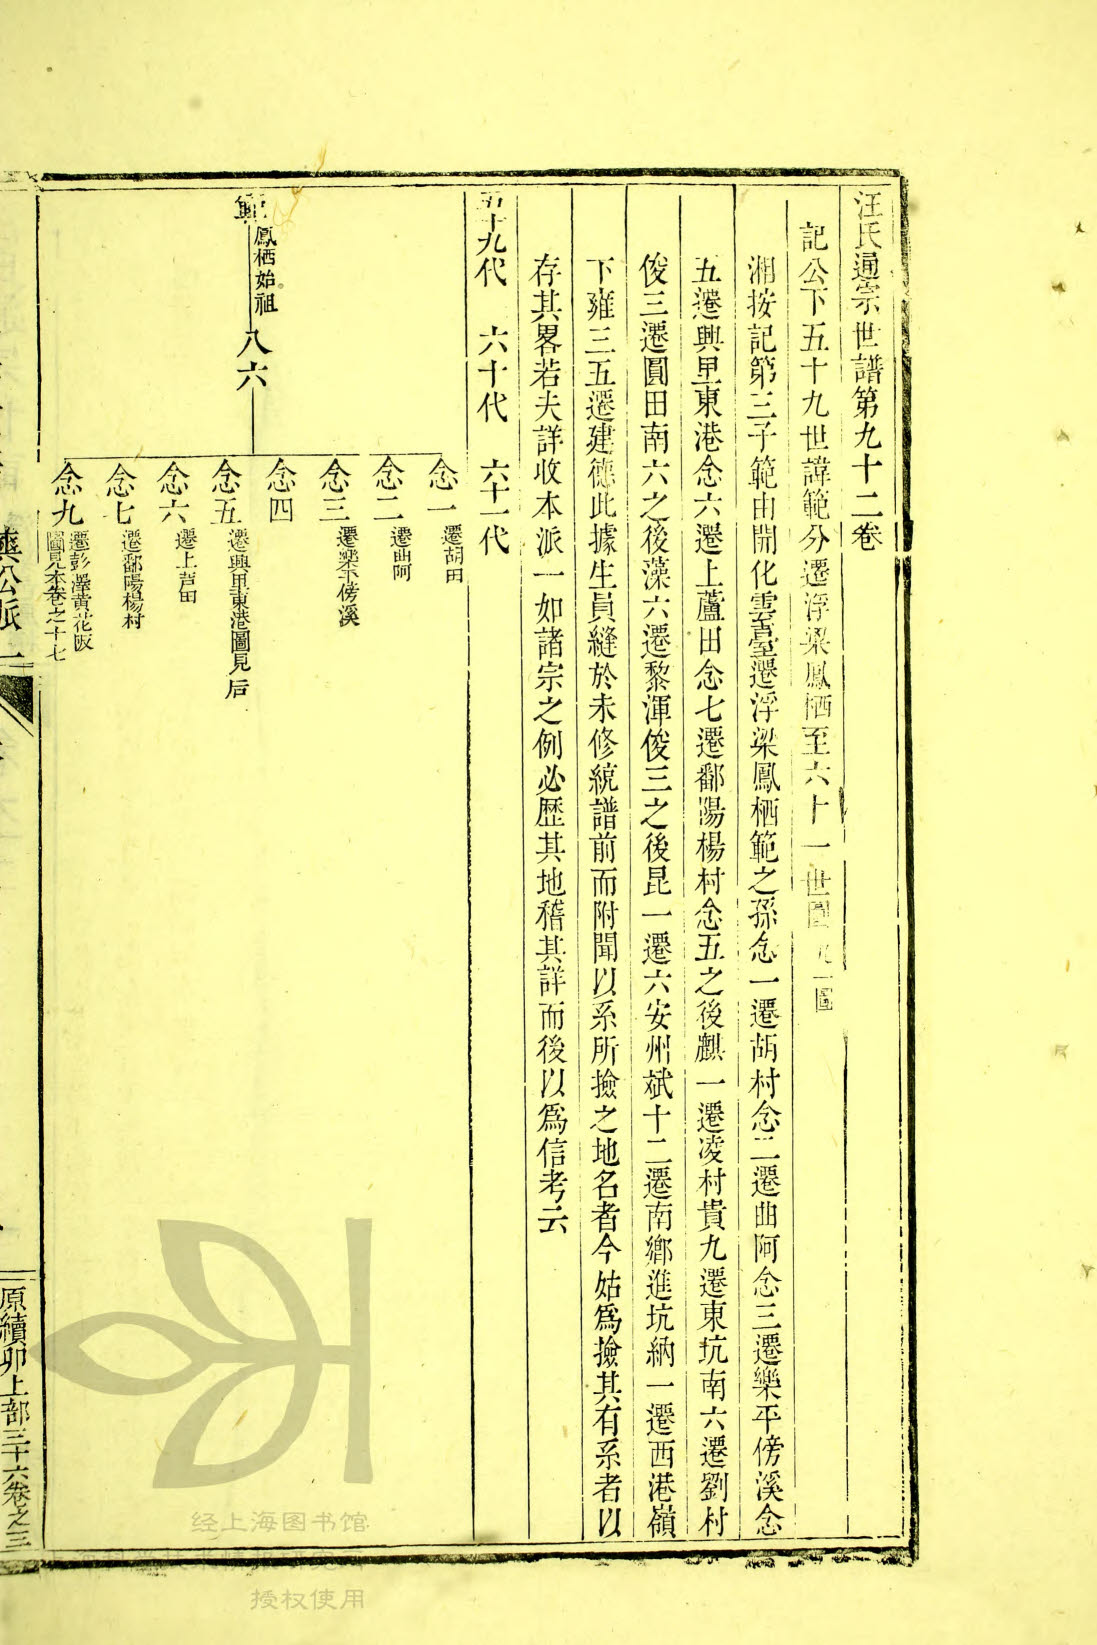 汪氏通宗世譜第九十二卷
記公下五十九世諱範分遷浮梁鳳栖至六十一世圖 一圖
湘按記第三子範由開化雲臺遷浮梁鳳栖範之孫念一遷胡村念二遷曲阿念三遷樂平傍溪念
五遷興里東港念六遷上蘆田念七遷鄱陽楊村念五之後麒一遷凌村貴九遷東坑南六遷劉村
俊三遷圓田南六之後藻六遷黎渾俊三之後昆一遷六安州斌十二遷南鄉進坑納一遷西港嶺
下雍三五遷建德此據生員縫於未修統譜前而附聞以系所撿之地名者今姑爲撿其有系者以
存其畧若夫詳收本派一如諸宗之例必歷其地稽其詳而後以爲信考云
五十九代 六十代 六十一代
範 鳳栖始祖 八六
念一 遷胡田
念二 遷曲阿
念三 遷樂平傍溪
念四
念五 遷興里東港圖見后
念六 遷上芦田
念七 遷鄱陽楊村
念九 遷彭澤黄花阪
圖見本卷之十七
爽公派 一
原續卯上部三十六卷之三
经上海图书馆
授权使用